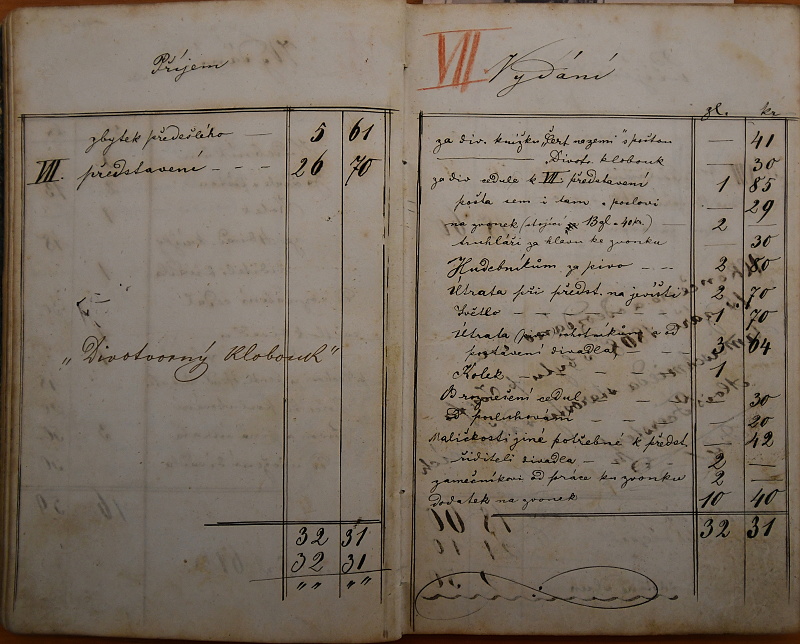 Příjem
zbytek předešlého — 5 61
VII. představení - - - 26 70
„Divotvorný Klobouk"
32 31
32 31
„ „ „ „
VII
Vydání
zl. kr
za div. knížku „Čert na zemi" s poštou — 41
„Divotv. klobouk — 30
za div cedule k VII představení 1 85
pošta sem i tam a poslovi — 29
na zvonek (stojící 13 zl. 40 kr) — 2 —
truhláři za hlavu ke zvonku — 30
Hudebníkům za pivo - - - 2 80
Útrata při předst. na jevišti 2 70
Světlo - - - 1 70
Útrata ochotníkům od
postavení divadla - - 3 64
Kolek - - - 1 —
Roznešení cedul - - — 30
— 20
Maličkosti jiné potřebné k předst. — 42
řiditeli divadla - - 2 —
zámečníkovi od práce ke zvonku 2 —
dodatek na zvonek 10 40
32 31